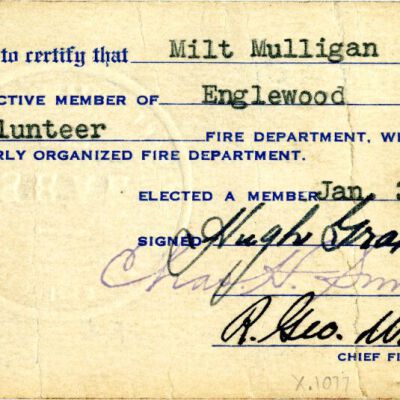 to certify that Milt Mulligan
CTIVE MEMBER OF Englewood
lunteer FIRE DEPARTMENT, W
RLY ORGANIZED FIRE DEPARTMENT.
ELECTED A MEMBER Jan
SIGNED Hugh Gra
Chas. H.
R. Geo. W
CHIEF FI
X.1077